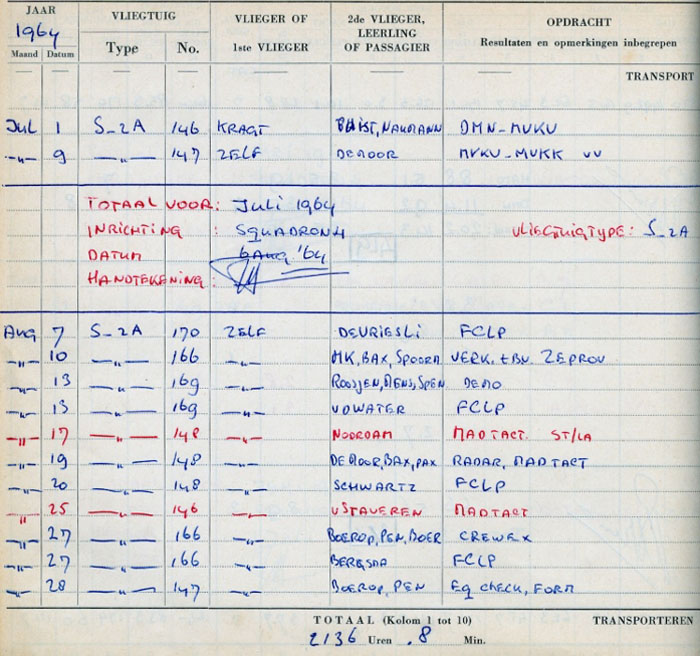 JAAR VLIEGTUIG VLIEGER OF 2de VLIEGER, OPDRACHT
1964 1ste VLIEGER LEERLING Resultaten en opmerkingen inbegrepen
Maand Datum Type No. OF PASSAGIER
TRANSPORT
Jul 1 S-2A 146 KRAGT NAUMANN DMN-MVKV
-"- 9 -"- 147 ZELF DEMOOR MVKV-MVKK VV
TOTAAL VOOR: Juli 1964
INRICHTING : SQUADRON 4 VLIEGTUIGTYPE: S-2A
DATUM 6 AUG '64
HANDTEKENING:
AUG 7 S-2A 170 ZELF DEVRIESLI FCLP
-"- 10 -"- 166 -"- MK, BAX, SPOORM VERK. tBV. ZEPROV
-"- 13 -"- 169 -"- ROOSJEN, MENS, SPEN DEMO
-"- 13 -"- 169 -"- VDWATER FCLP
-"- 17 -"- 148 -"- NOORDAM MADTACT. ST/LA
-"- 19 -"- 148 -"- DEMOOR, BAX, PAX RADAR, MADTACT
-"- 20 -"- 148 -"- SCHWARTZ FCLP
" 25 -"- 146 -"- VSTAVEREN MADTACT
" 27 -"- 166 -"- BOEROP, PEN, BOER CREWEX
-"- 27 -"- 166 -"- BERGSMA FCLP
-"- 28 -"- 147 -"- BOEROP, PEN EQ CHECK, FORM
TOTAAL (Kolom 1 tot 10) TRANSPORTEREN
2136 Uren .8 Min.